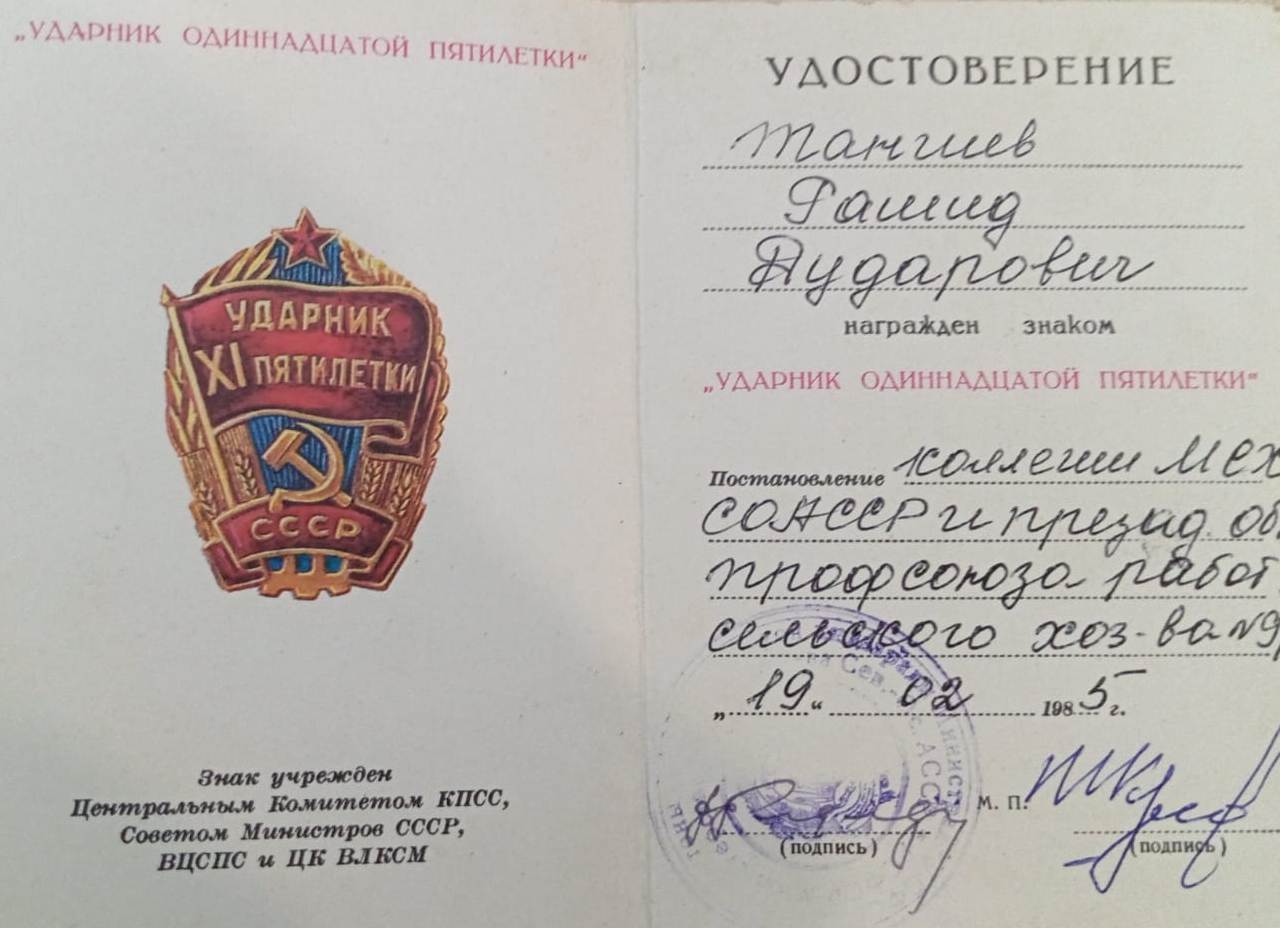 „УДАРНИК ОДИННАДЦАТОЙ ПЯТИЛЕТКИ“
УДАРНИК
XI ПЯТИЛЕТКИ
СССР
Знак учрежден
Центральным Комитетом КПСС,
Советом Министров СССР,
ВЦСПС и ЦК ВЛКСМ
УДОСТОВЕРЕНИЕ
Тангиев
Рашид
Аударович
награжден знаком
„УДАРНИК ОДИННАДЦАТОЙ ПЯТИЛЕТКИ“
Постановление коллегии МСХ
СОАССР и презид. об
профсоюза работ
сельского хоз-ва №9
„19“ 02 1985 г.
М. П.
(подпись) (подпись)